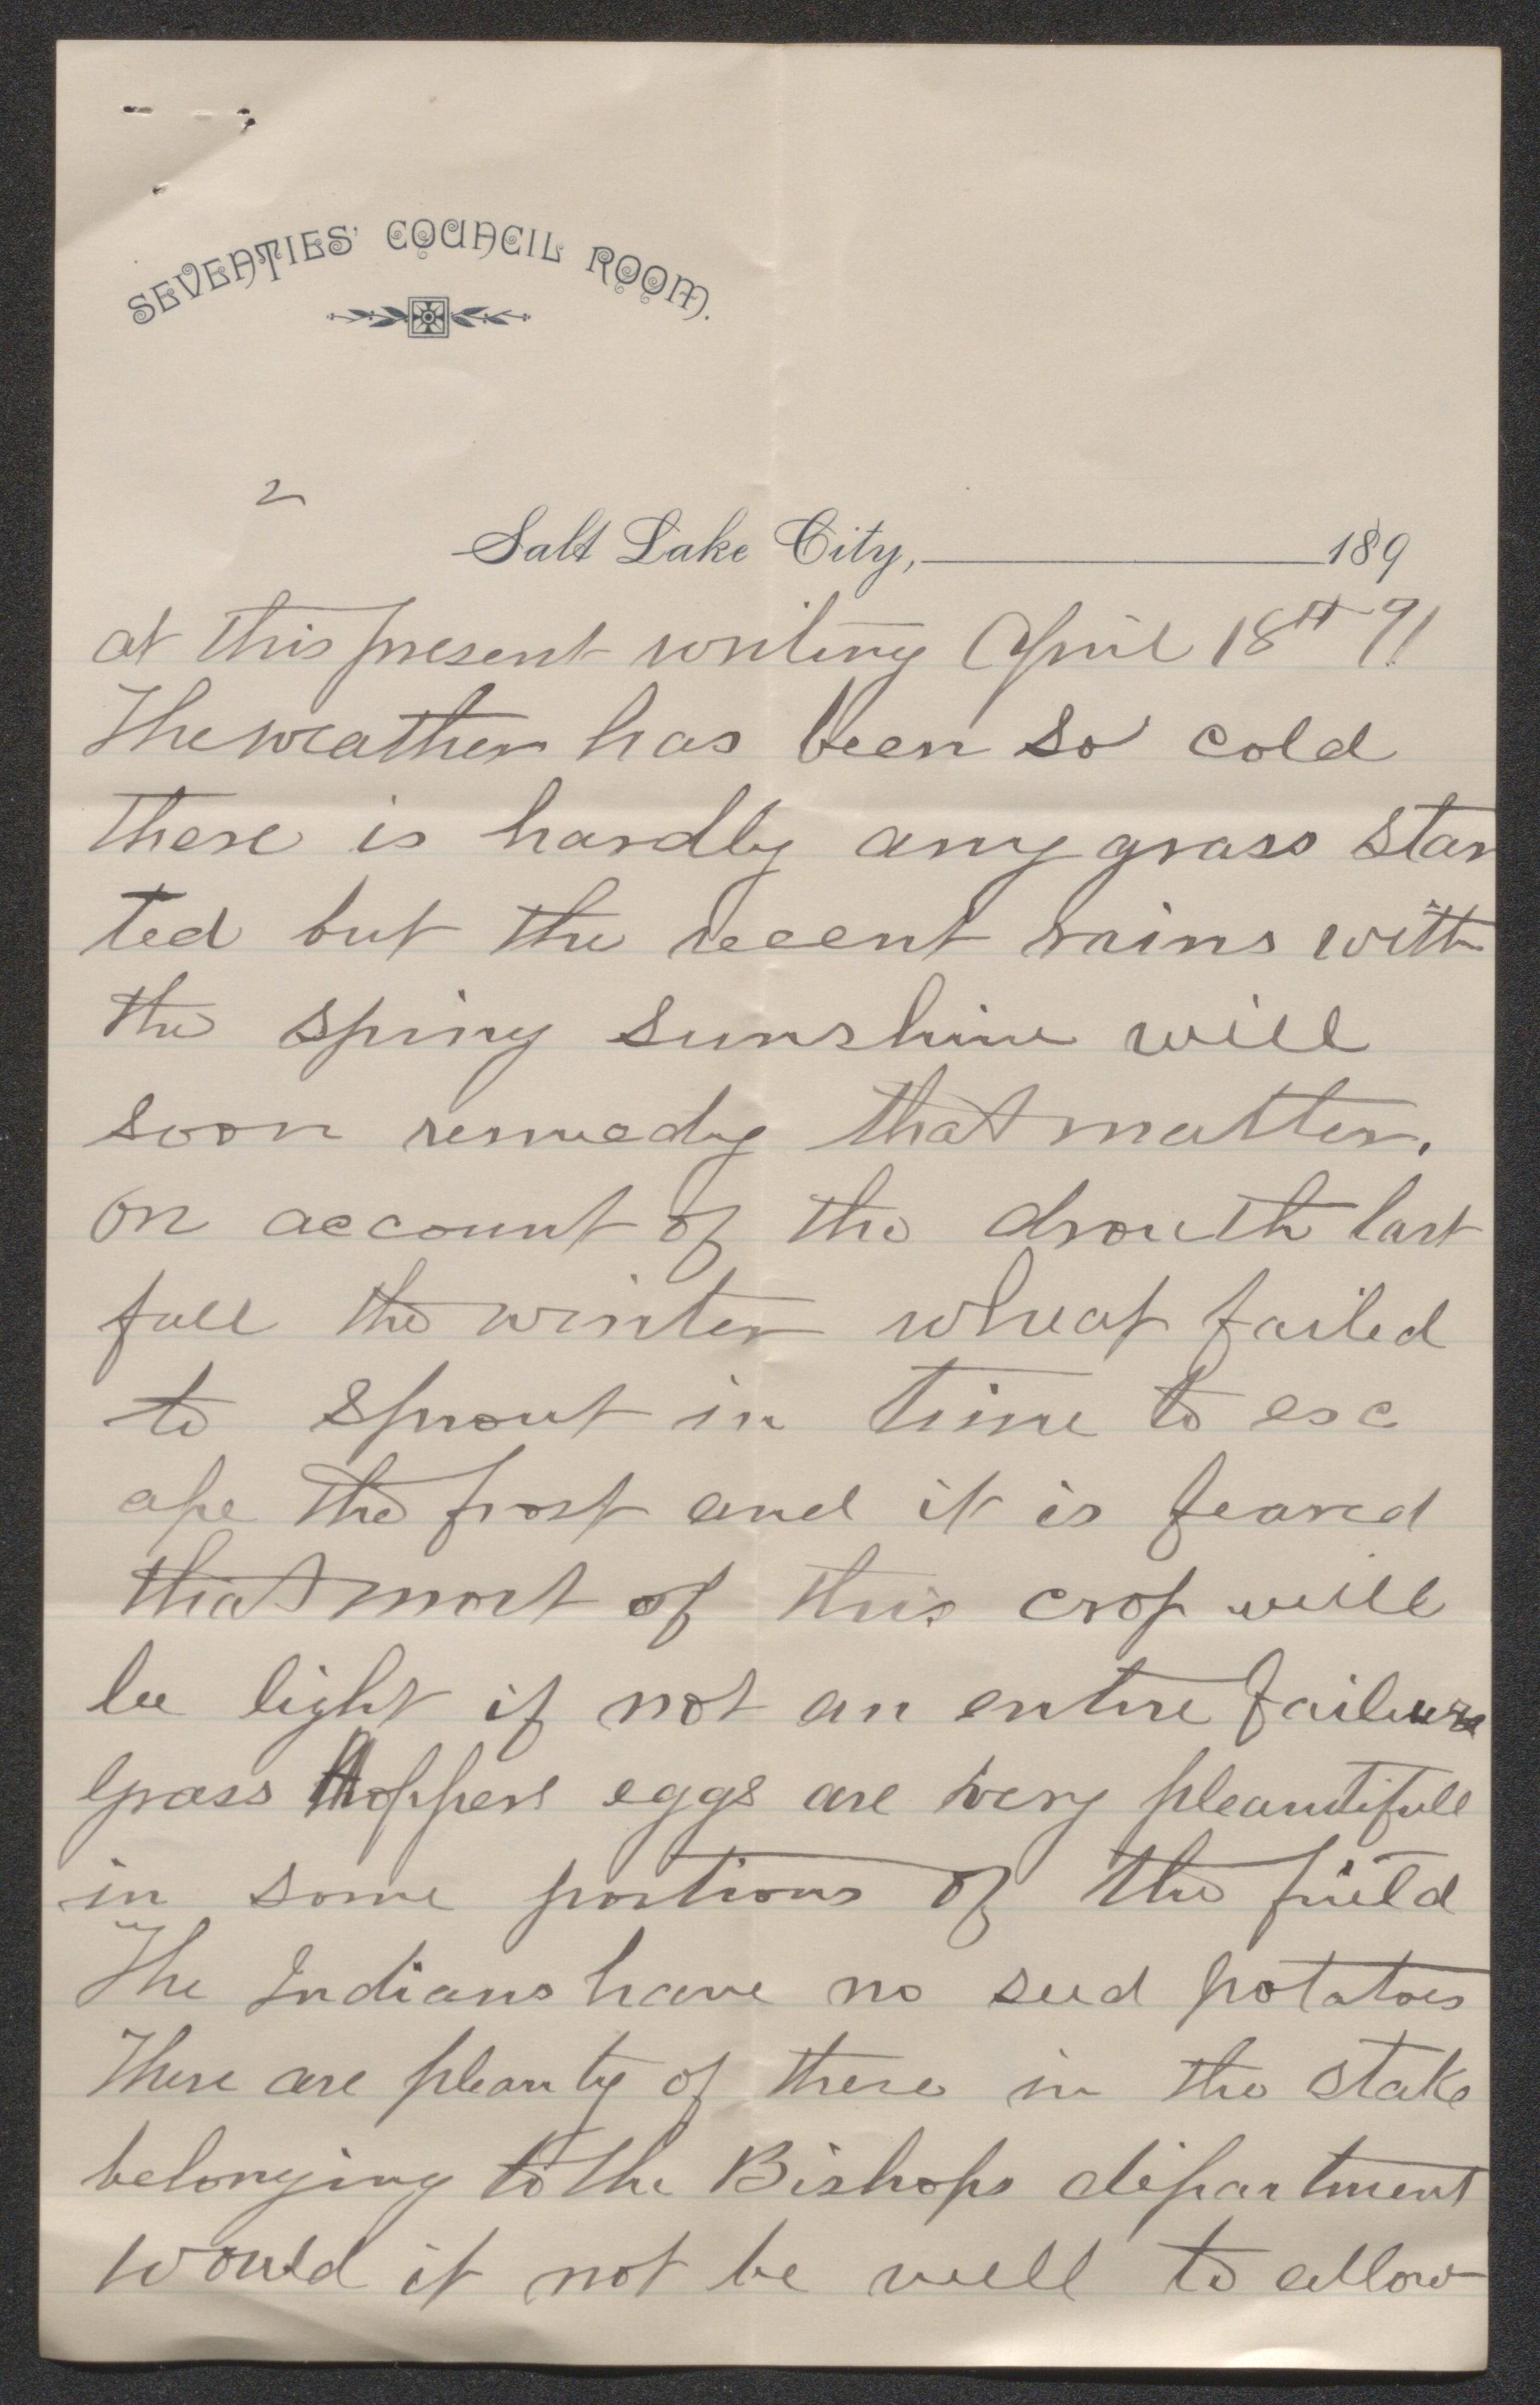 SEVENTIES' COUNCIL ROOM.
2
Salt Lake City, 189
at this present writing April 18th 91
The weather has been so cold
there is hardly any grass star
ted but the recent rains with
the spring sunshine will
soon remedy that matter.
on account of the drouth last
fall the winter wheat failed
to sprout in time to esc
ape the frost and it is feared
that most of this crop will
be light if not an entire failure
grass hoppers eggs are very pleantifull
in some portions of the field
The Indians have no seed potatoes
There are pleanty of these in the stake
belonging to the Bishops department
would it not be well to allow